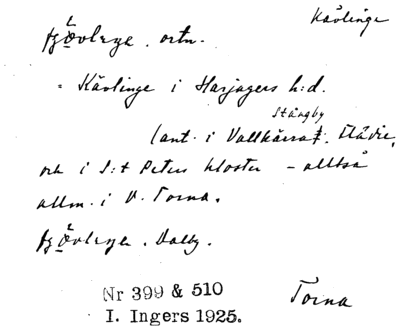 Kävlinge
ortn.
= Kävlinge i Harjagers h:d.
Stångby
(ant. i Vallkärra, Flädie,
och i S:t Peters kloster – alltså
allm. i V. Torna.
Dalby.
Nr 399 & 510
I. Ingers 1925.
Torna